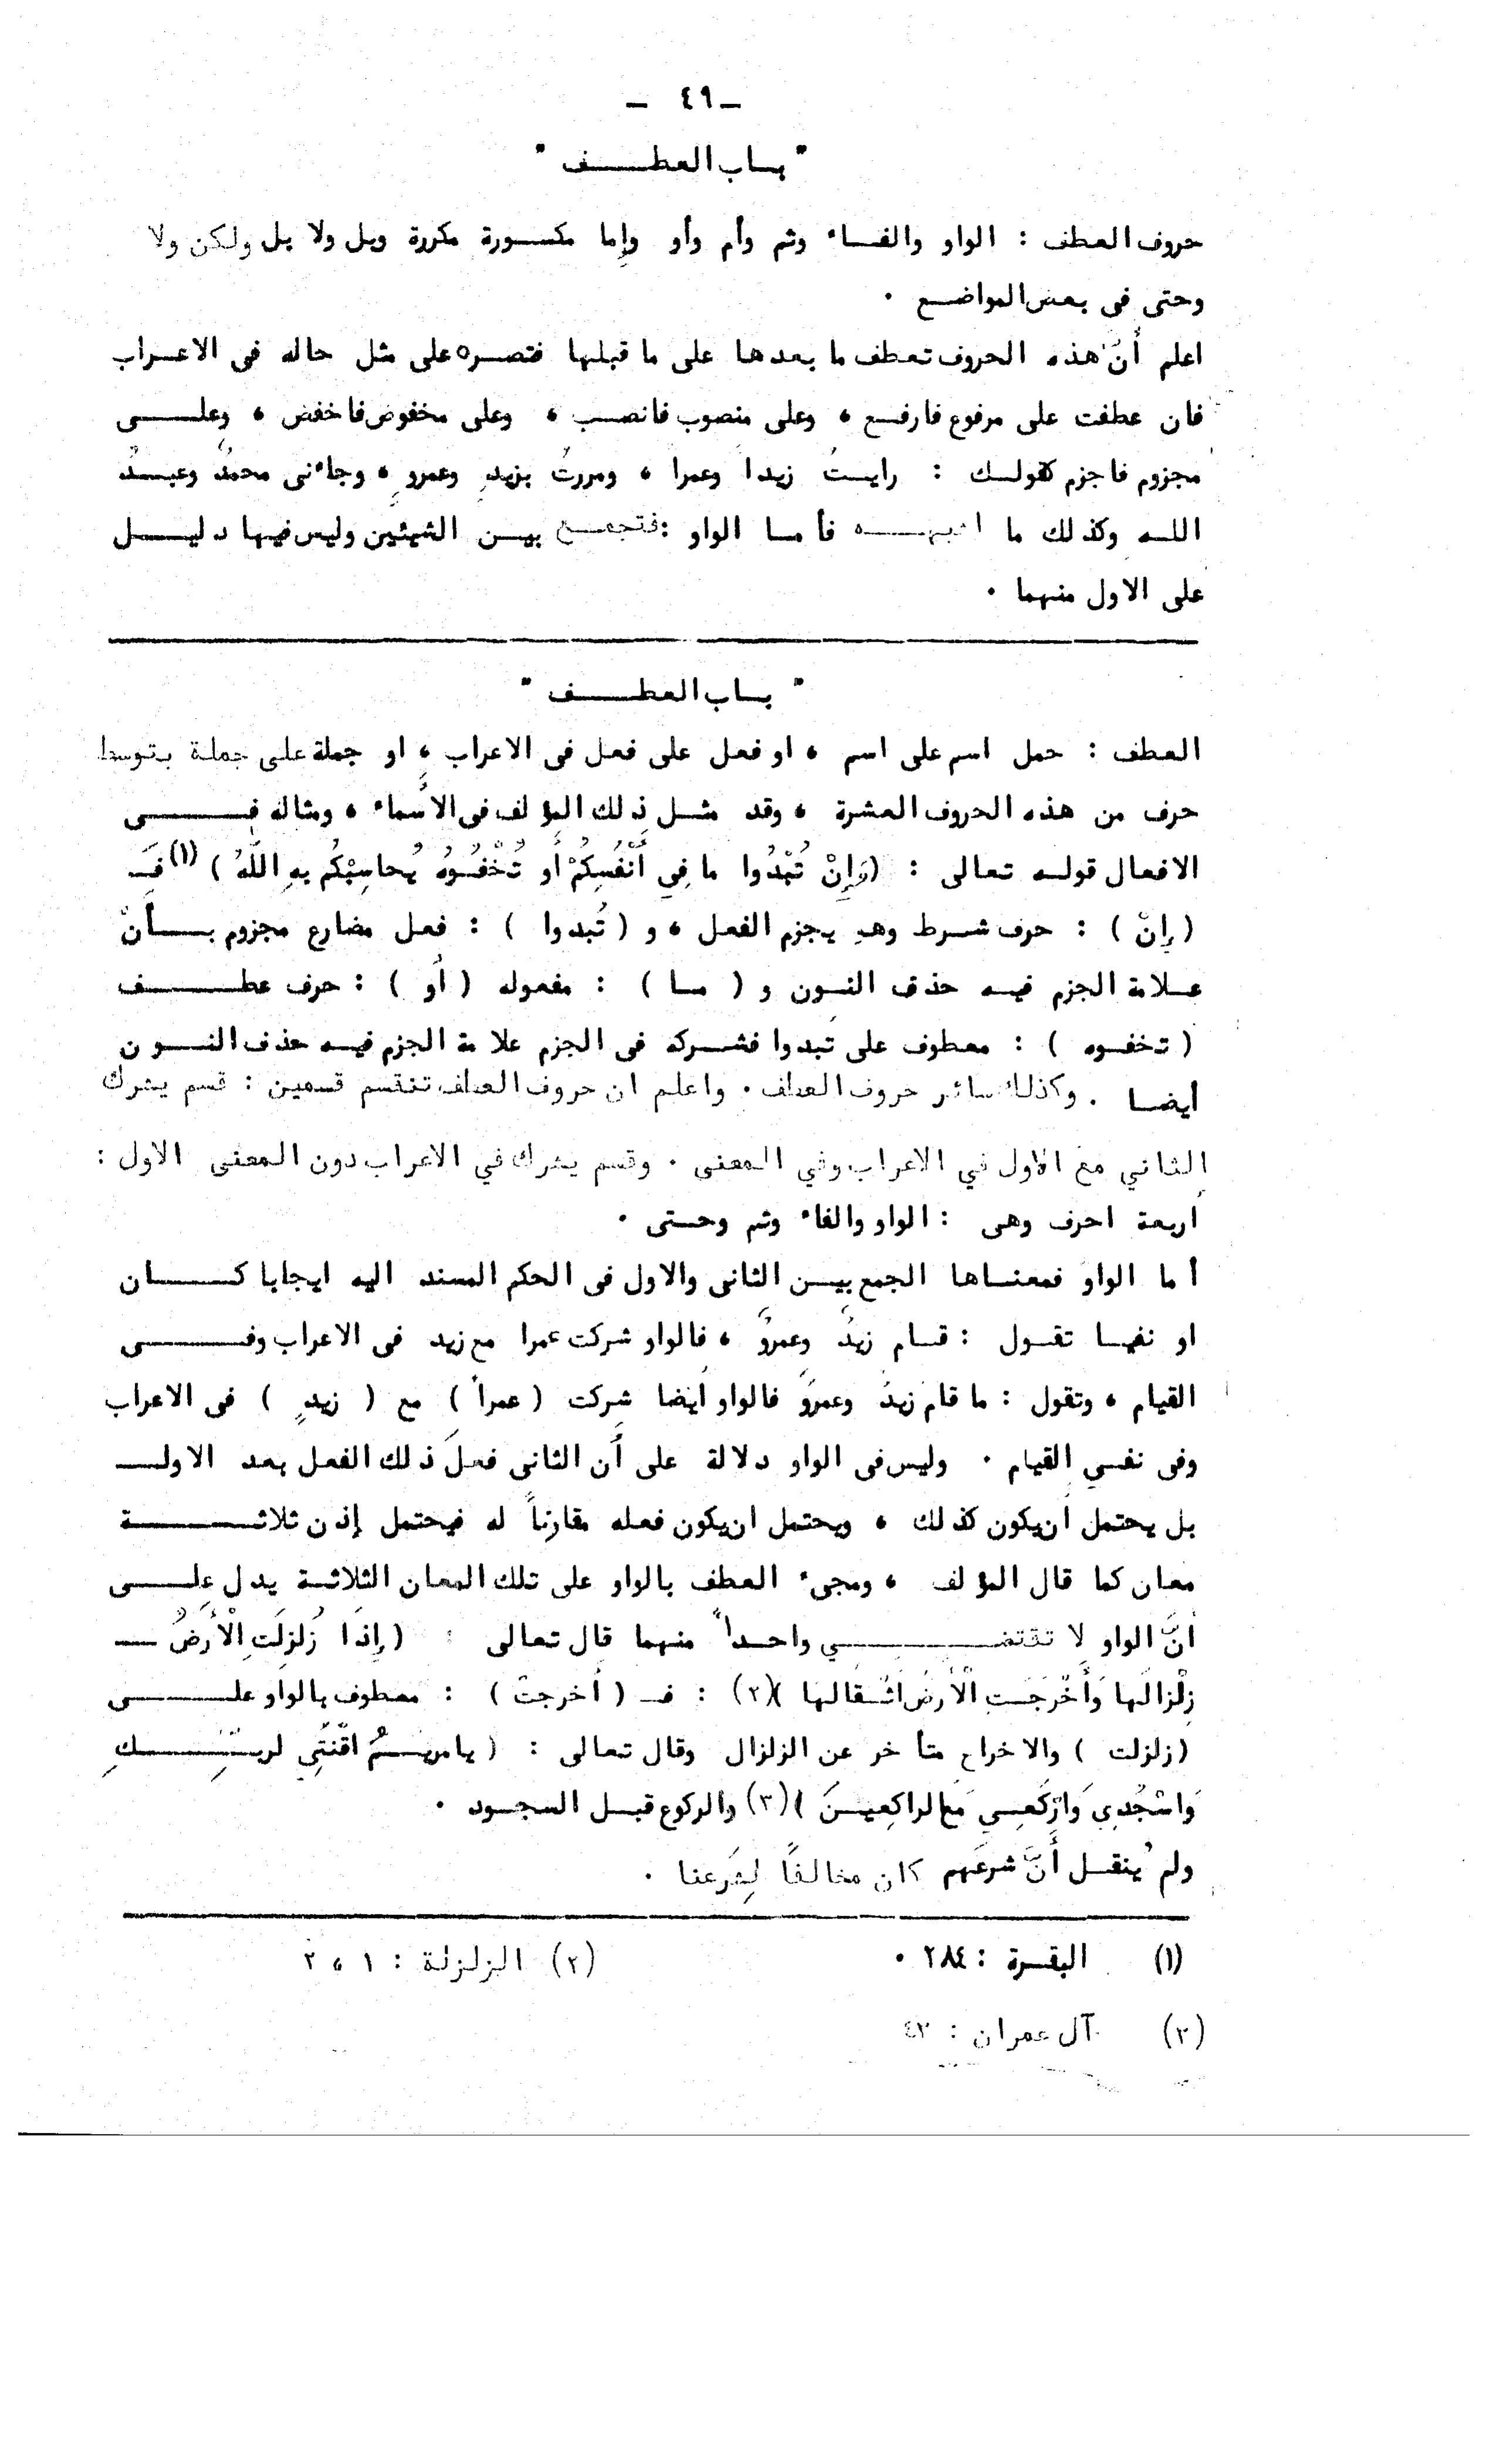 ـ ٤٩ ـ
" باب العطف "
حروف العطف : الواو والفاء وثم وأم وأو وإما مكسورة مكررة وبل ولا بل ولكن ولا
وحتى فى بعض المواضع .
اعلم أنّ هذه الحروف تعطف ما بعدها على ما قبلها فتصره على مثل حاله فى الاعراب
فان عطفت على مرفوع فارفع ، وعلى منصوب فانصب ، وعلى مخفوض فاخفض ، وعلى
مجزوم فاجزم كقولك : رايتُ زيداً وعمرا ، ومررتُ بزيدٍ وعمروٍ ، وجاءنى محمدٌ وعبدُ
الله وكذلك ما اشبهه فأما الواو : فتجمع بين الشيئين وليس فيها دليل
على الاول منهما .
" باب العطف "
العطف : حمل اسم على اسم ، او فعل على فعل فى الاعراب ، او جملة على جملة بتوسط
حرف من هذه الحروف العشرة ، وقد مثل ذلك المؤلف فى الأسماء ، ومثاله فى
الافعال قوله تعالى : (وَإِنْ تُبْدُوا ما فِي أَنْفُسِكُمْ أَو تُخْفُوهُ يُحاسِبْكُم بِهِ اللَّهُ ) (١) فَـ
( إنْ ) : حرف شرط وهو يجزم الفعل ، و ( تُبدوا ) : فعل مضارع مجزوم بـأنْ
علامة الجزم فيه حذف النون و ( ما ) : مفعوله ( أو ) : حرف عطف
( تخفوه ) : معطوف على تبدوا فشركه فى الجزم علامة الجزم فيه حذف النون
أيضا . وكذلك سائر حروف العطف . واعلم ان حروف العطف تنقسم قسمين : قسم يشرك
الثاني مع الأول في الاعراب وفي المعنى . وقسم يشرك في الاعراب دون المعنى الاول :
اربعة احرف وهى : الواو والفاء وثم وحتى .
أما الواو فمعناها الجمع بين الثانى والاول فى الحكم المسند اليه ايجابا كان
او نفيا تقول : قام زيدٌ وعمروٌ ، فالواو شركت عمرا مع زيد فى الاعراب وفى
القيام ، وتقول : ما قام زيدٌ وعمروٌ فالواو أيضا شركت ( عمراً ) مع ( زيدٍ ) فى الاعراب
وفى نفسي القيام . وليس فى الواو دلالة على أن الثانى فعلَ ذلك الفعل بعد الاول
بل يحتمل أن يكون كذلك ، ويحتمل ان يكون فعله مقارناً له فيحتمل إذن ثلاثة
معان كما قال المؤلف ، ومجىء العطف بالواو على تلك المعان الثلاثة يدل على
انّ الواو لا تقتضي واحداً منهما قال تعالى : (إِذَا زُلزِلَتِ الْأَرضُ
زِلْزالَها وَأَخْرَجَتِ الْأَرضُ أَثْقالها )(٢) : فـ ( أخرجتْ ) : معطوف بالواو على
(زلزلت ) والاخراج متأخر عن الزلزال وقال تعالى : ( يا مريمُ اقْنُتِي لربِّكِ
وَاسْجُدِي وَارْكَعِي مَعَ الراكِعِينَ )(٣) والركوع قبل السجود .
ولم ينقل أَنَّ شرعَهم كان مخالفًا لِشَرعنا .
(١) البقرة : ٢٨٤ .
(٢) الزلزلة : ١ ، ٢
(٣) آل عمران : ٤٣